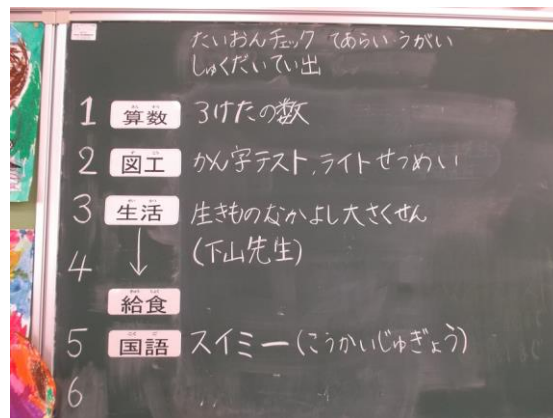 たいおんチェック てあらい うがい
しゅくだいてい出
1 算数 3けたの数
2 図工 かん字テスト,ライトせつめい
3 生活 生きものなかよし大さくせん
4 ↓ (下山先生)
給食
5 国語 スイミー(こうかいじゅぎょう)
6